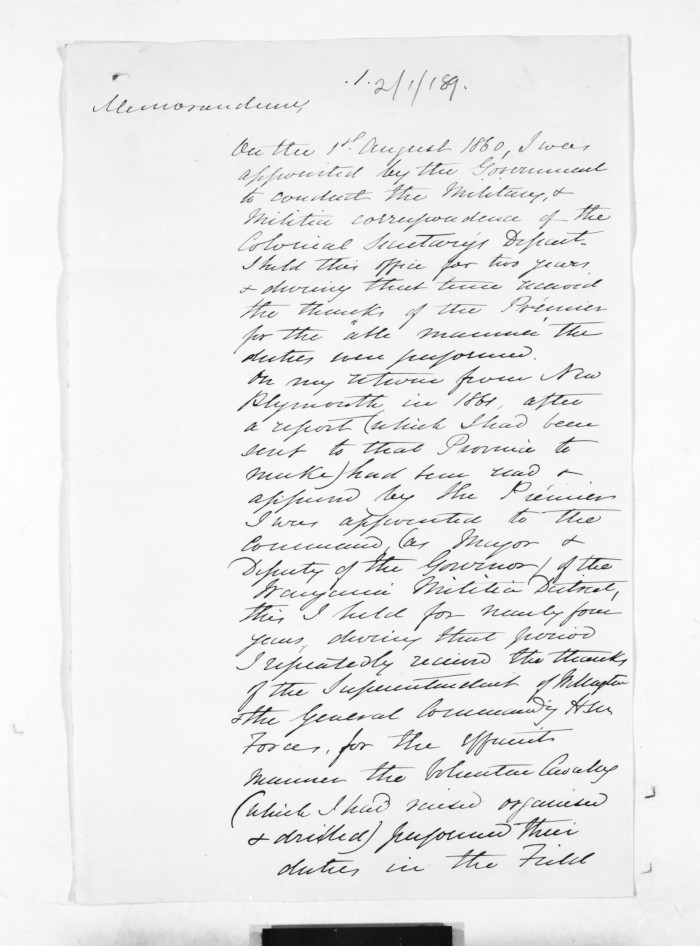 .1. 2/1/189.
Memorandum,
On the 1st August 1860, I was
appointed by the Government
to conduct the Military, &
Militia correspondence of the
Colonial Secretary's Depart-
I held this office for two years
& during that time received
the thanks of the Premier
for the "able manner" the
duties were performed.
On my return from New
Plymouth in 1861, after
a report (which I had been
sent to that Province to
make) had been read &
approved by the Premier
I was appointed to the
Command, (as Major &
Deputy of the Governor) of the
Wanganui Militia District,
this I held for nearly four
years, during that period
I repeatedly received the thanks
of the Superintendent of Wellington
& the General Commandg H.M.
Forces, for the efficient
manner the Volunteer Cavalry
(which I had raised organised
& drilled) performed their
duties in the Field